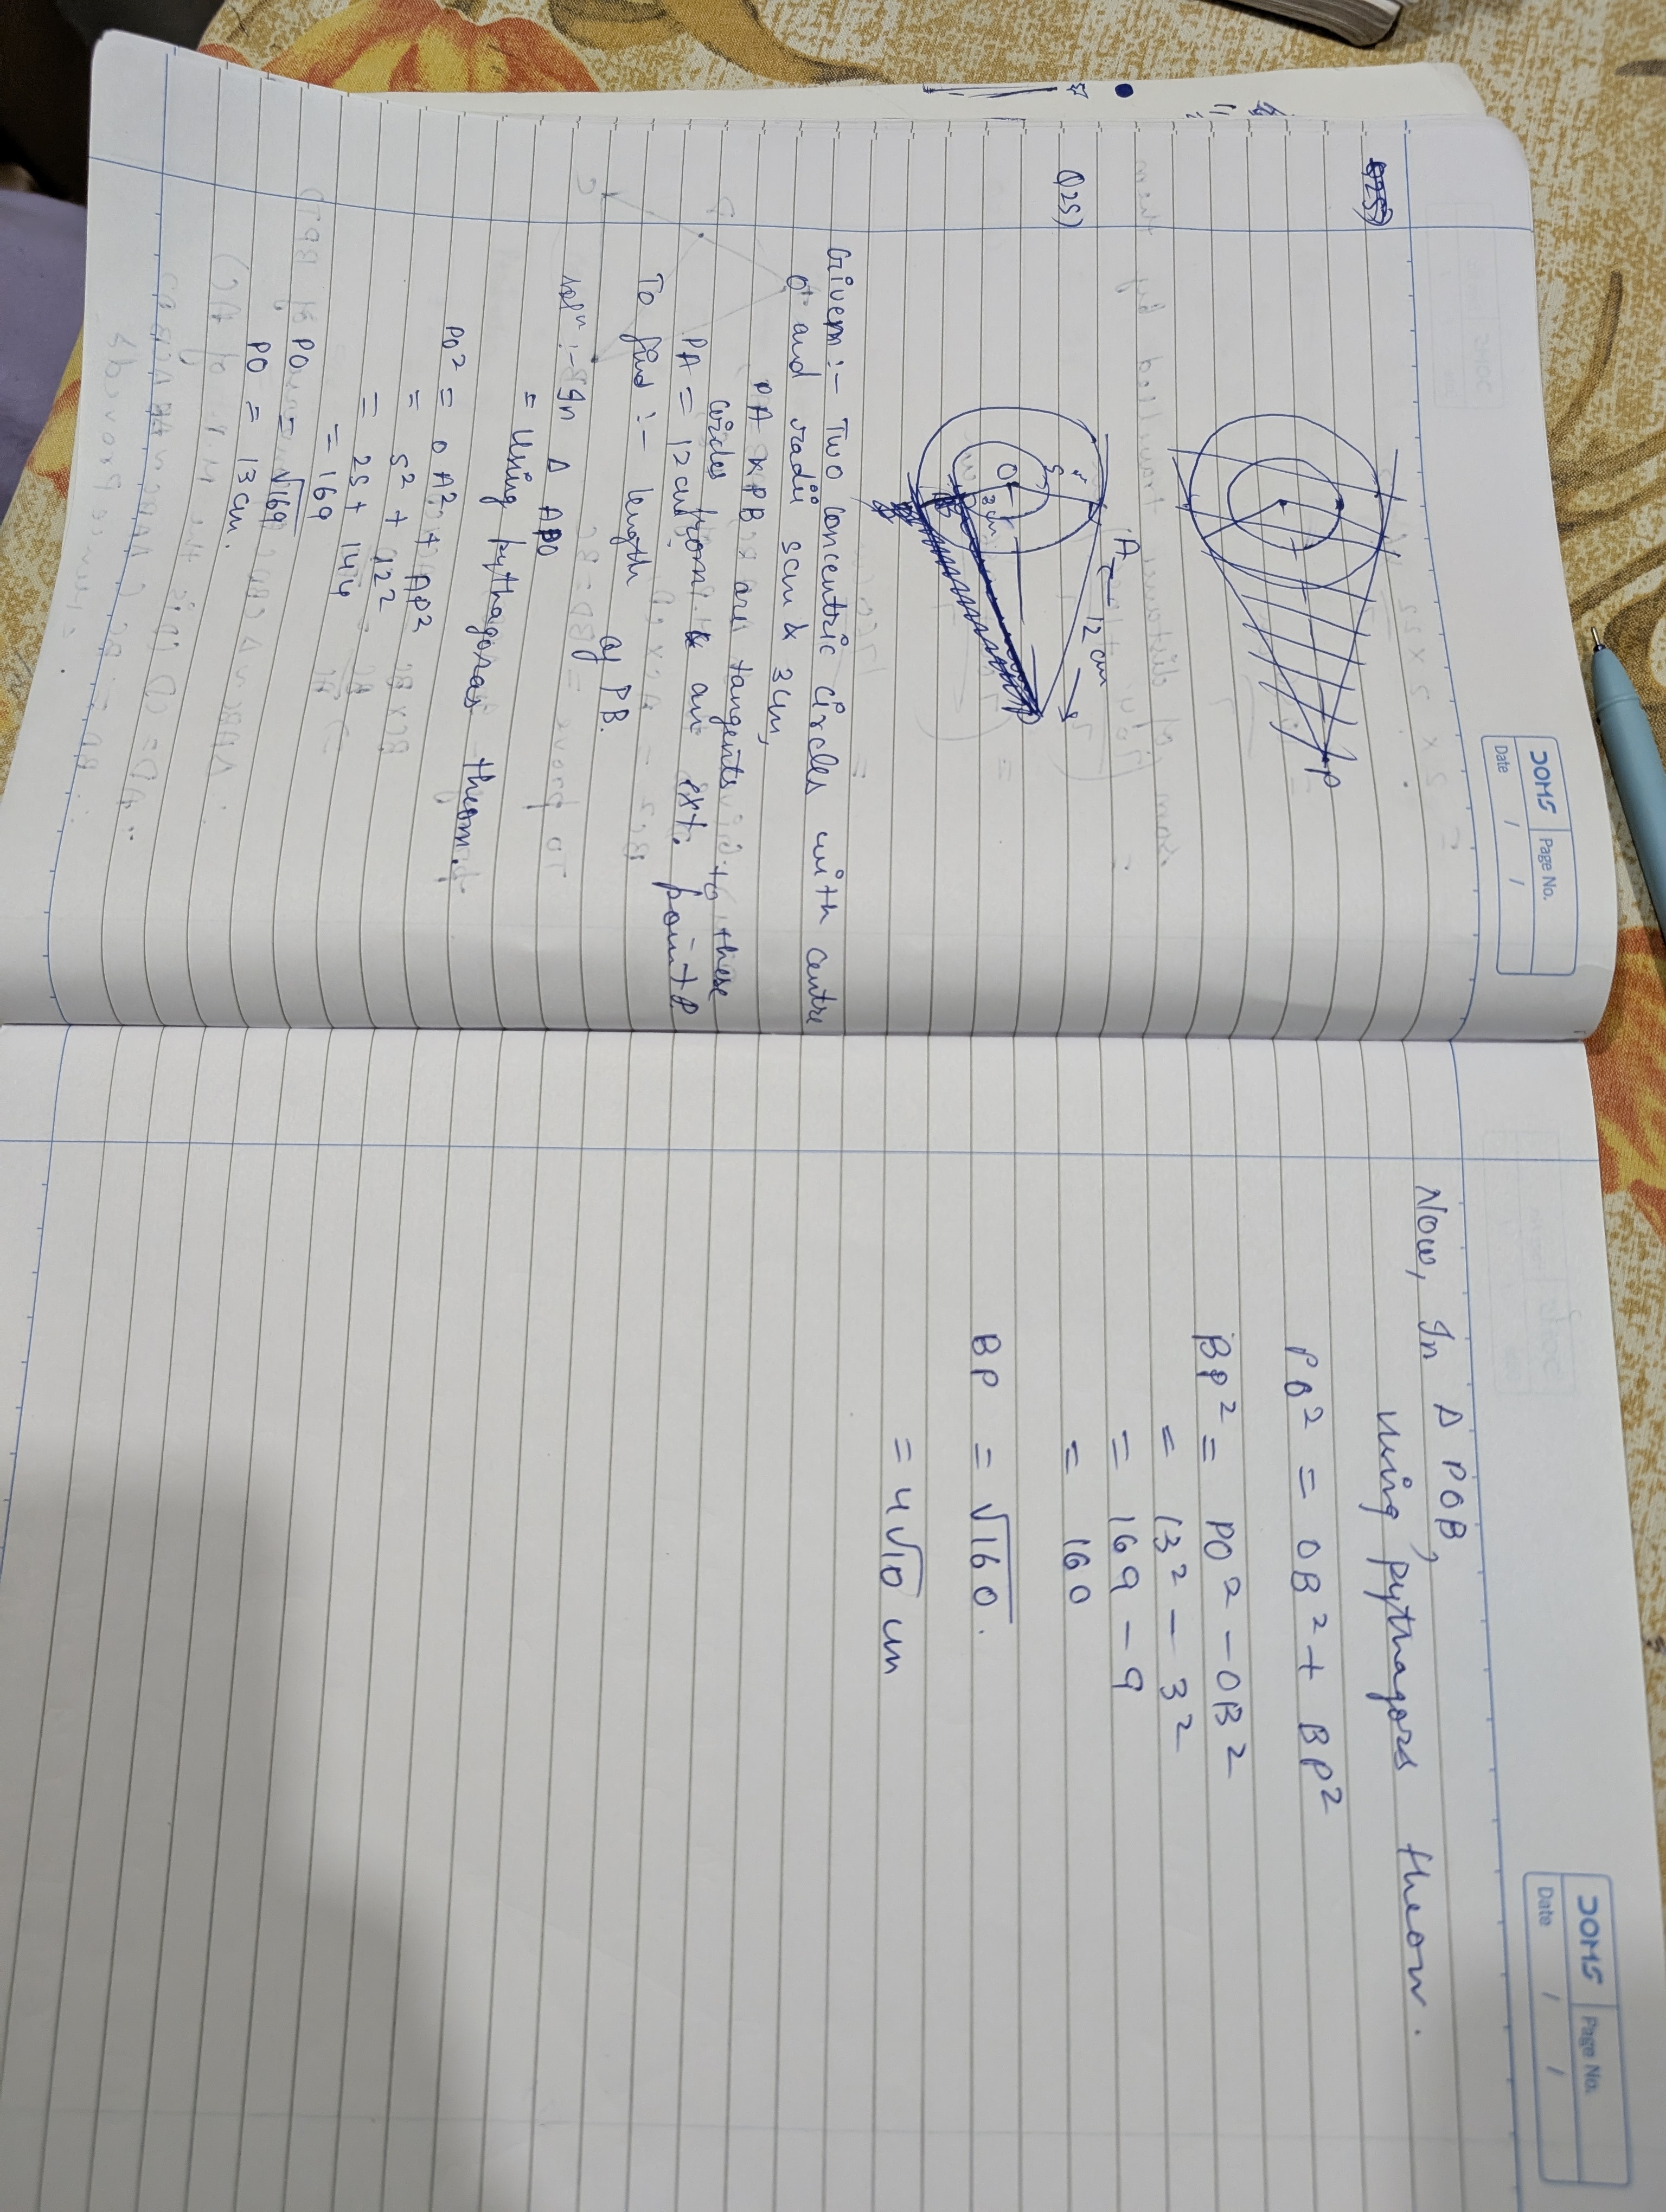 DOMS Page No.
Date / /
Q25)
P
Q25)
A
12 cm
5
O
3cm
P
Given :- Two concentric circles with centre
O and radii 5cm & 3cm,
PA & PB are tangents to these
circles from an ext. point P
PA = 12cm
To find :- length of PB.
solⁿ :- In Δ APO
= Using pythagoras theom.
PO² = OA² + AP²
= 5² + 12²
= 25 + 144
= 169
PO = √169
PO = 13 cm.
DOMS Page No.
Date / /
Now, In Δ POB,
using pytnagors theom.
PO² = OB² + BP²
BP² = PO² - OB²
= 13² - 3²
= 169 - 9
= 160
BP = √160.
= 4√10 cm